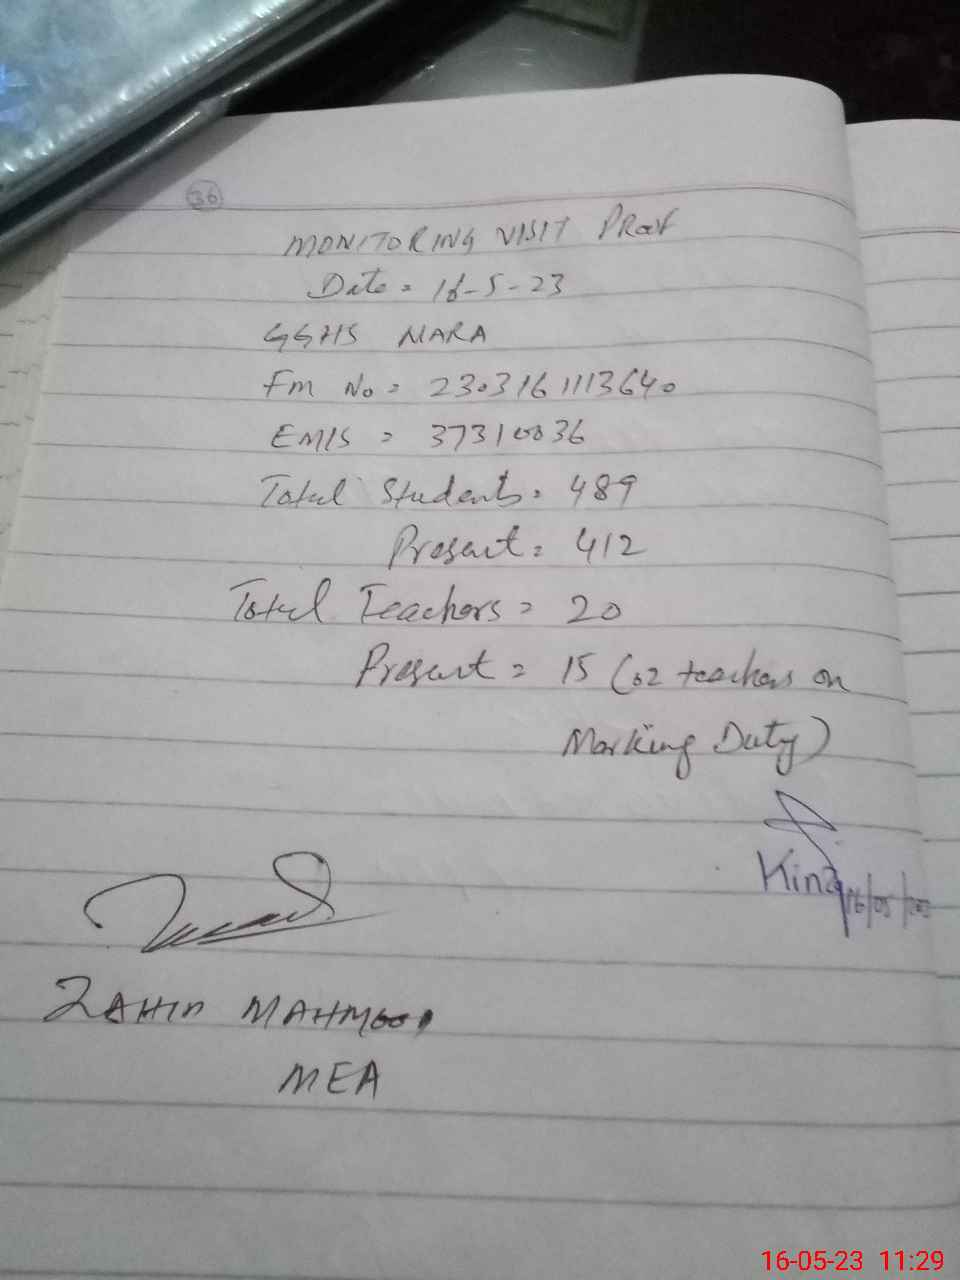 36
MONITORING VISIT PROOF
Date = 16-5-23
GGHS NARA
Fm No = 230316 1113640
EMIS = 37310036
Total Students = 489
Present = 412
Total Teachers = 20
Present = 15 (02 teachers on
Marking Duty)
Kinza
16/05/
ZAHID MAHMOOD
MEA
16-05-23 11:29